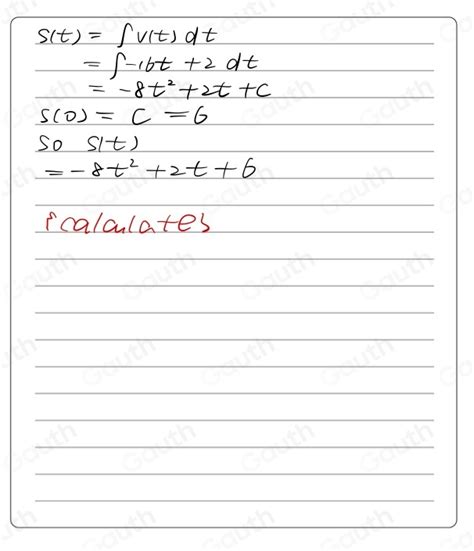 S(t) = ∫v(t) dt
= ∫-16t + 2 dt
= -8t² + 2t + C
S(0) = C = 6
So S(t)
= -8t² + 2t + 6
{calculate}
Gauth